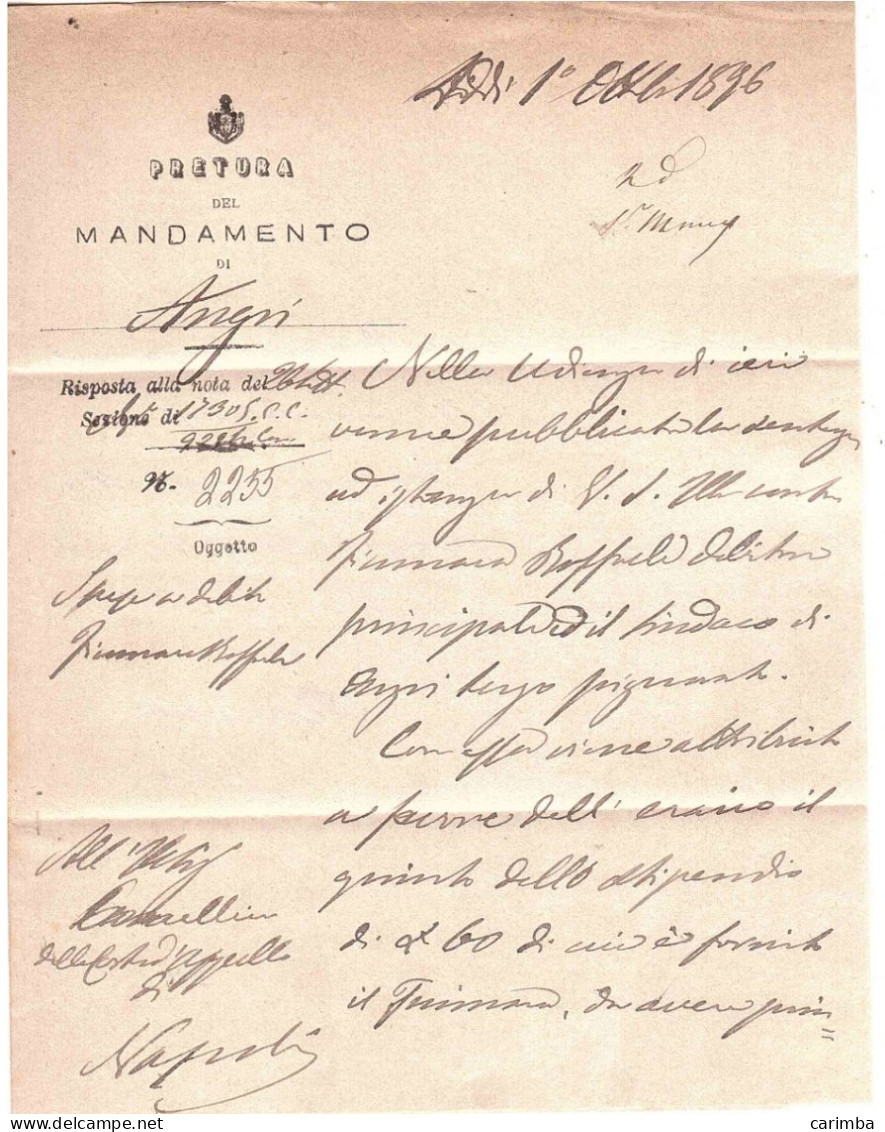 Addì 1° Ottb. 1896
PRETURA
DEL
MANDAMENTO
DI
Angri
Risposta alla nota del
Sezione di 17305. C. C.
N. 2255
Oggetto
Spese a debito
Raffaele
All'
Cancelliere
della Corte d'appello
di
Napoli
Nella Udienza di ieri
venne pubblicata la sentenza
ad istanza di V. S. Illa contro
Raffaele debitore
principale ed il Sindaco di
Angri terzo pignorato.
Con essa viene attribuito
a favore dell' erario il
quinto dello stipendio
di £ 60 di cui è fornito
il
da avere prin=
carimba